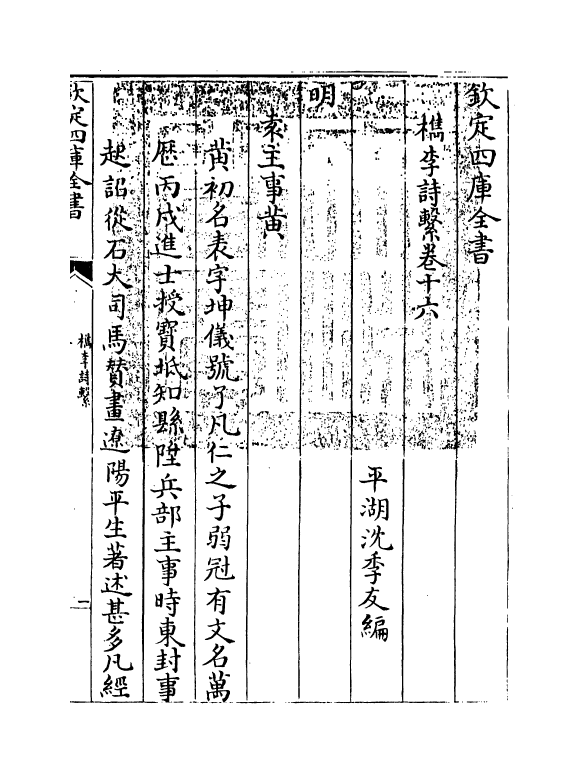 欽定四庫全書
檇李詩繫卷十六
平湖沈季友編
明
袁主事黄
黄初名表字坤儀號了凡仁之子弱冠有文名萬
歴丙戌進士授寶坻知縣陞兵部主事時東封事
起詔從石大司馬贊畫遼陽平生著述甚多凡經
欽定四庫全書
檇李詩繫
一